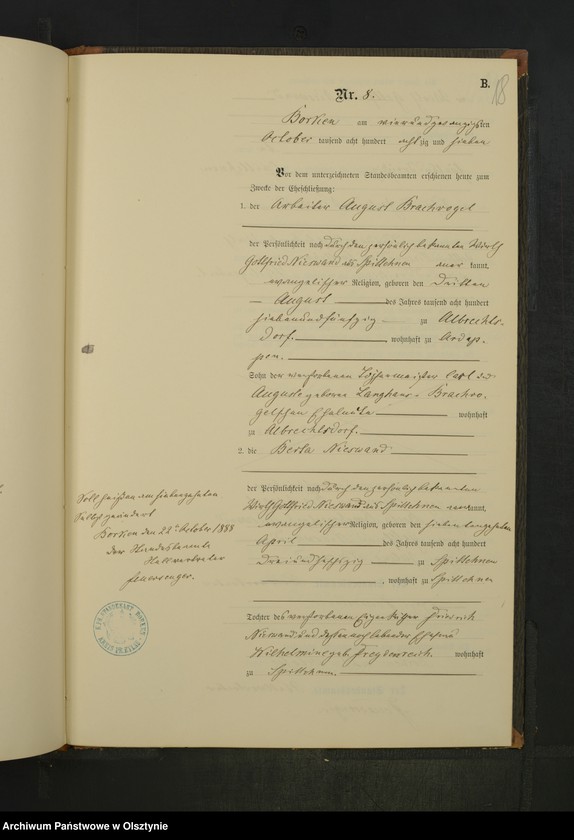 B.
18
Nr. 8.
Borken am vierundzwanzigsten
October tausend acht hundert achtzig und sieben
Vor dem unterzeichneten Standesbeamten erschienen heute zum
Zwecke der Eheschließung:
1. der Arbeiter August Brachvogel
der Persönlichkeit nach durch den persönlich bekannten Wirth
Gottfried Nieswand aus Spittehnen aner kannt,
evangelischer Religion, geboren den dritten
August des Jahres tausend acht hundert
siebenundfünfzig zu Albrechts-
dorf, wohnhaft zu
Sohn der verstorbenen Töpfermeister Carl und
Auguste geborene Langhans - Brachvo-
gelschen Eheleute wohnhaft
zu Albrechtsdorf.
2. die Berta Nieswand
der Persönlichkeit nach durch den persönlich bekannten
Wirth Gottfried Nieswand aus Spittehnen anerkannt,
evangelischer Religion, geboren den siebentengehnten
April des Jahres tausend acht hundert
dreiundsechszig zu Spittehnen
, wohnhaft zu Spittehnen
Tochter des verstorbenen Eigenkäthner Friedrich
Nieswand und dessen noch lebenden Ehefrau
Wilhelmine geb. wohnhaft
zu Spittehnen.
Soll heißen am siebenzehnten
Borken den 22 October 1888
der Standesbeamte
In Vertretung
KÖN. STANDESAMT BORKEN
KREIS PR. EYLAU
Archiwum Państwowe w Olsztynie